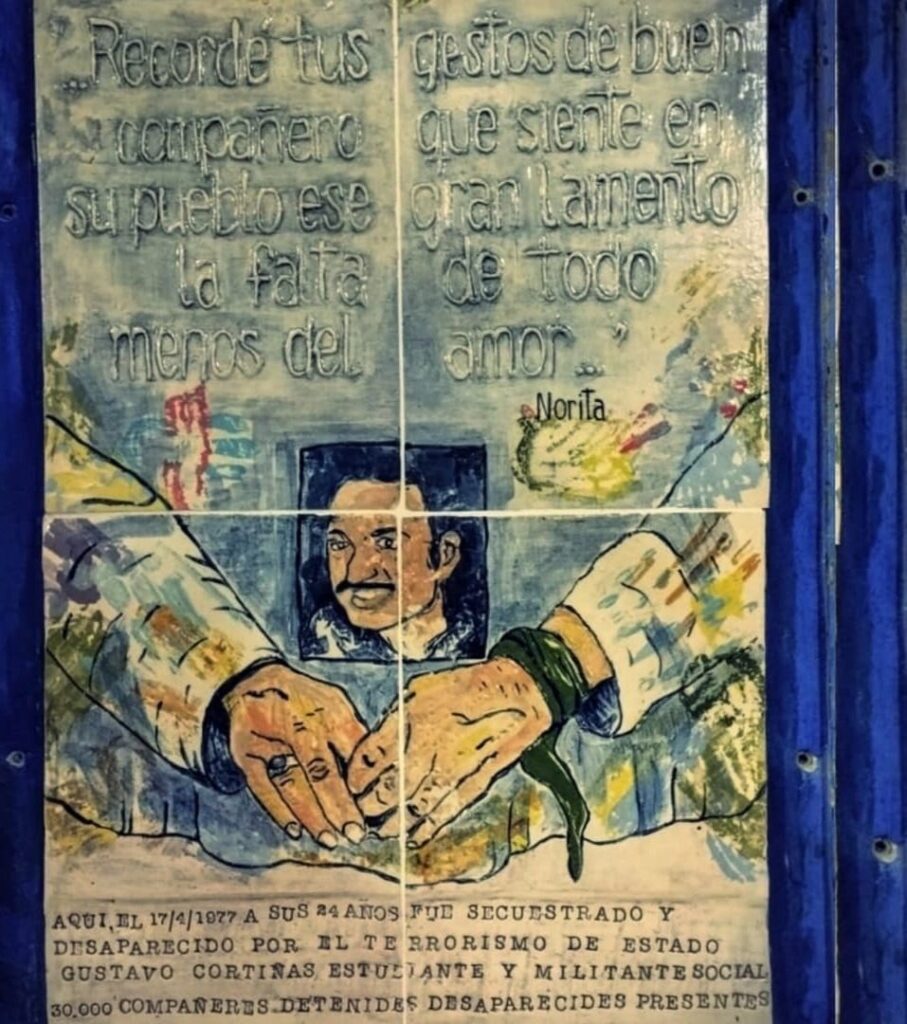 ...Recordé tus gestos de buen
compañero que siente en
su pueblo ese gran lamento
la falta de todo
menos del amor..."
Norita
AQUI, EL 17/4/1977 A SUS 24 AÑOS FUE SECUESTRADO Y
DESAPARECIDO POR EL TERRORISMO DE ESTADO
GUSTAVO CORTIÑAS ESTUDIANTE Y MILITANTE SOCIAL
30.000 COMPAÑERES DETENIDES DESAPARECIDES PRESENTES